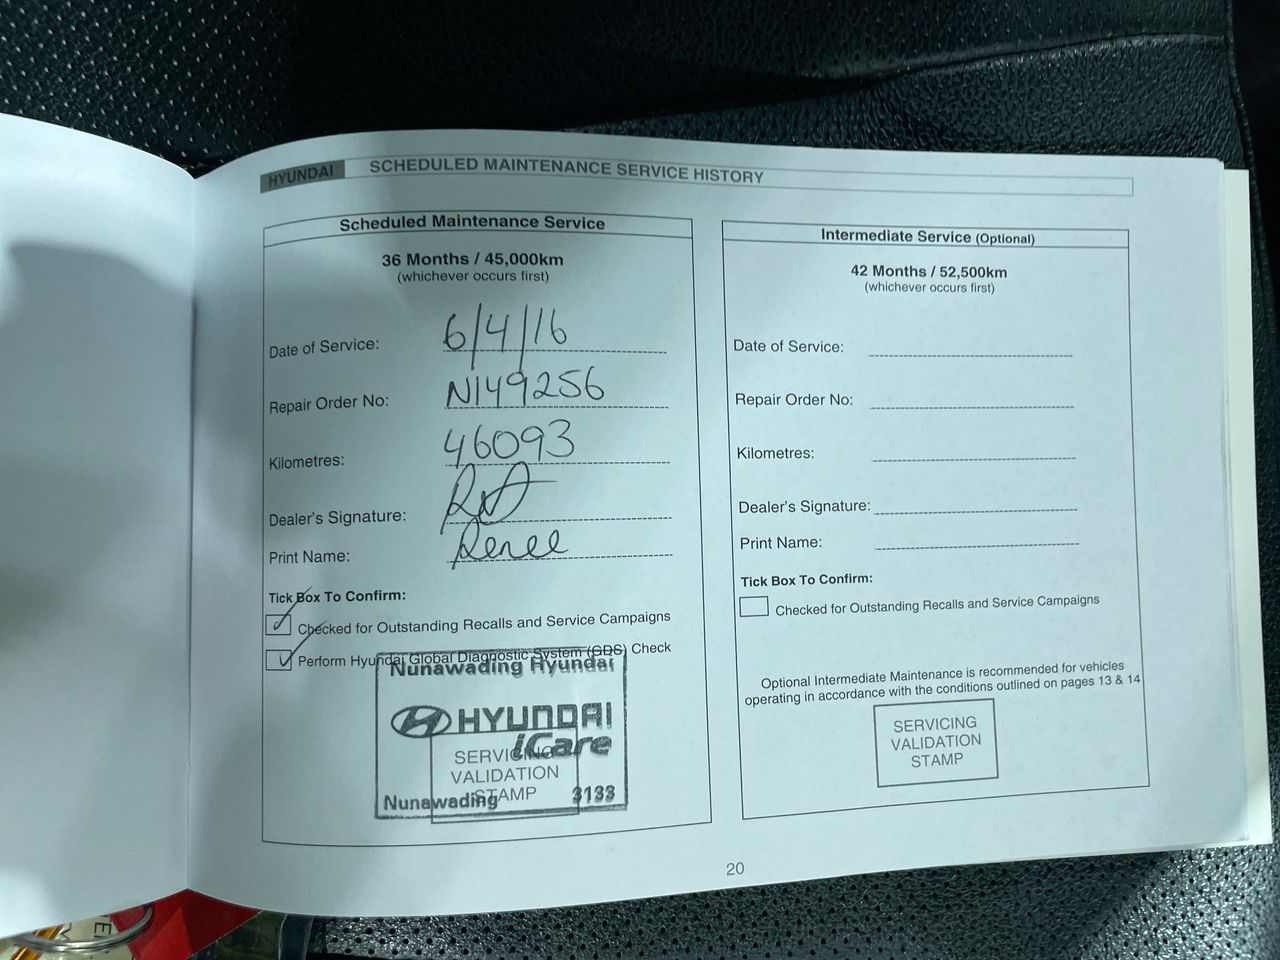 HYUNDAI SCHEDULED MAINTENANCE SERVICE HISTORY
Scheduled Maintenance Service
36 Months / 45,000km
(whichever occurs first)
Date of Service: 6/4/16
Repair Order No: N149256
Kilometres: 46093
Dealer's Signature:
Print Name: Renee
Tick Box To Confirm:
Checked for Outstanding Recalls and Service Campaigns
Perform Hyundai Global Diagnostic System (GDS) Check
Nunawading Hyundai
HYUNDAI
iCare
SERVICING
VALIDATION
STAMP
Nunawading 3133
Intermediate Service (Optional)
42 Months / 52,500km
(whichever occurs first)
Date of Service:
Repair Order No:
Kilometres:
Dealer's Signature:
Print Name:
Tick Box To Confirm:
Checked for Outstanding Recalls and Service Campaigns
Optional Intermediate Maintenance is recommended for vehicles
operating in accordance with the conditions outlined on pages 13 & 14
SERVICING
VALIDATION
STAMP
20